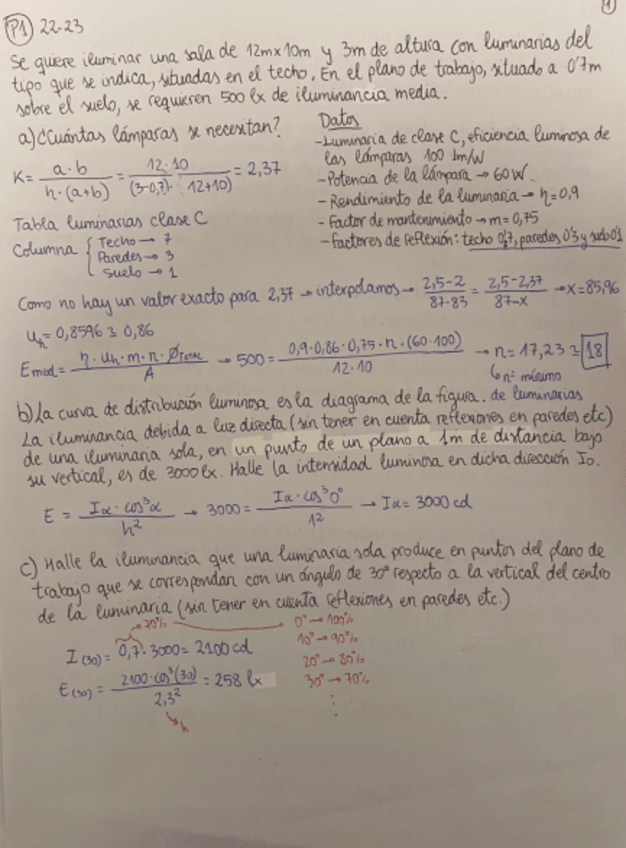 1
P1) 22-23
Se quiere iluminar una sala de 12mx10m y 3m de altura con luminarias del
tipo que se indica, situadas en el techo. En el plano de trabajo, situado a 0'7m
sobre el suelo, se requieren 500 lx de iluminancia media.
a) ¿Cuántas lámparas se necesitan?
K = a·b / h·(a+b) = 12·10 / (3-0,7)·(12+10) = 2,37
Tabla luminarias clase C
Columna { Techo → 7
Paredes → 3
Suelo → 1
Datos
- Luminaria de clase C, eficiencia luminosa de
las lámparas 100 lm/W
- Potencia de la lámpara → 60W.
- Rendimiento de la luminaria → η=0,9
- Factor de mantenimiento → m=0,75
- Factores de reflexión: techo 0'7, paredes 0'3 y suelo 0'1
Como no hay un valor exacto para 2,37 → interpolamos → 2,5-2 / 87-83 = 2,5-2,37 / 87-x → x=85,96
Uη = 0,8596 ≅ 0,86
Emed = η·Uη·m·n·ØTOTAL / A → 500 = 0,9·0,86·0,75·n·(60·100) / 12·10 → n=17,23 ≅ 18
↳ nº mínimo
de luminarias
b) La curva de distribución luminosa es la diagrama de la figura.
La iluminancia debida a luz directa (sin tener en cuenta reflexiones en paredes etc)
de una iluminaria sola, en un punto de un plano a 1m de distancia bajo
su vertical, es de 3000 lx. Halle la intensidad luminosa en dicha dirección I0.
E = Iα·cos³α / h² → 3000 = Iα·cos³0° / 1² → Iα = 3000 cd
c) Halle la iluminancia que una luminaria sola produce en puntos del plano de
trabajo que se correspondan con un ángulo de 30° respecto a la vertical del centro
de la luminaria (sin tener en cuenta reflexiones en paredes etc.)
→ 70%
I(30) = 0,7·3000 = 2100 cd
E(30) = 2100·cos³(30) / 2,3² = 258 lx
h
0° → 100%
10° → 90%
20° → 80%
30° → 70%
⋮